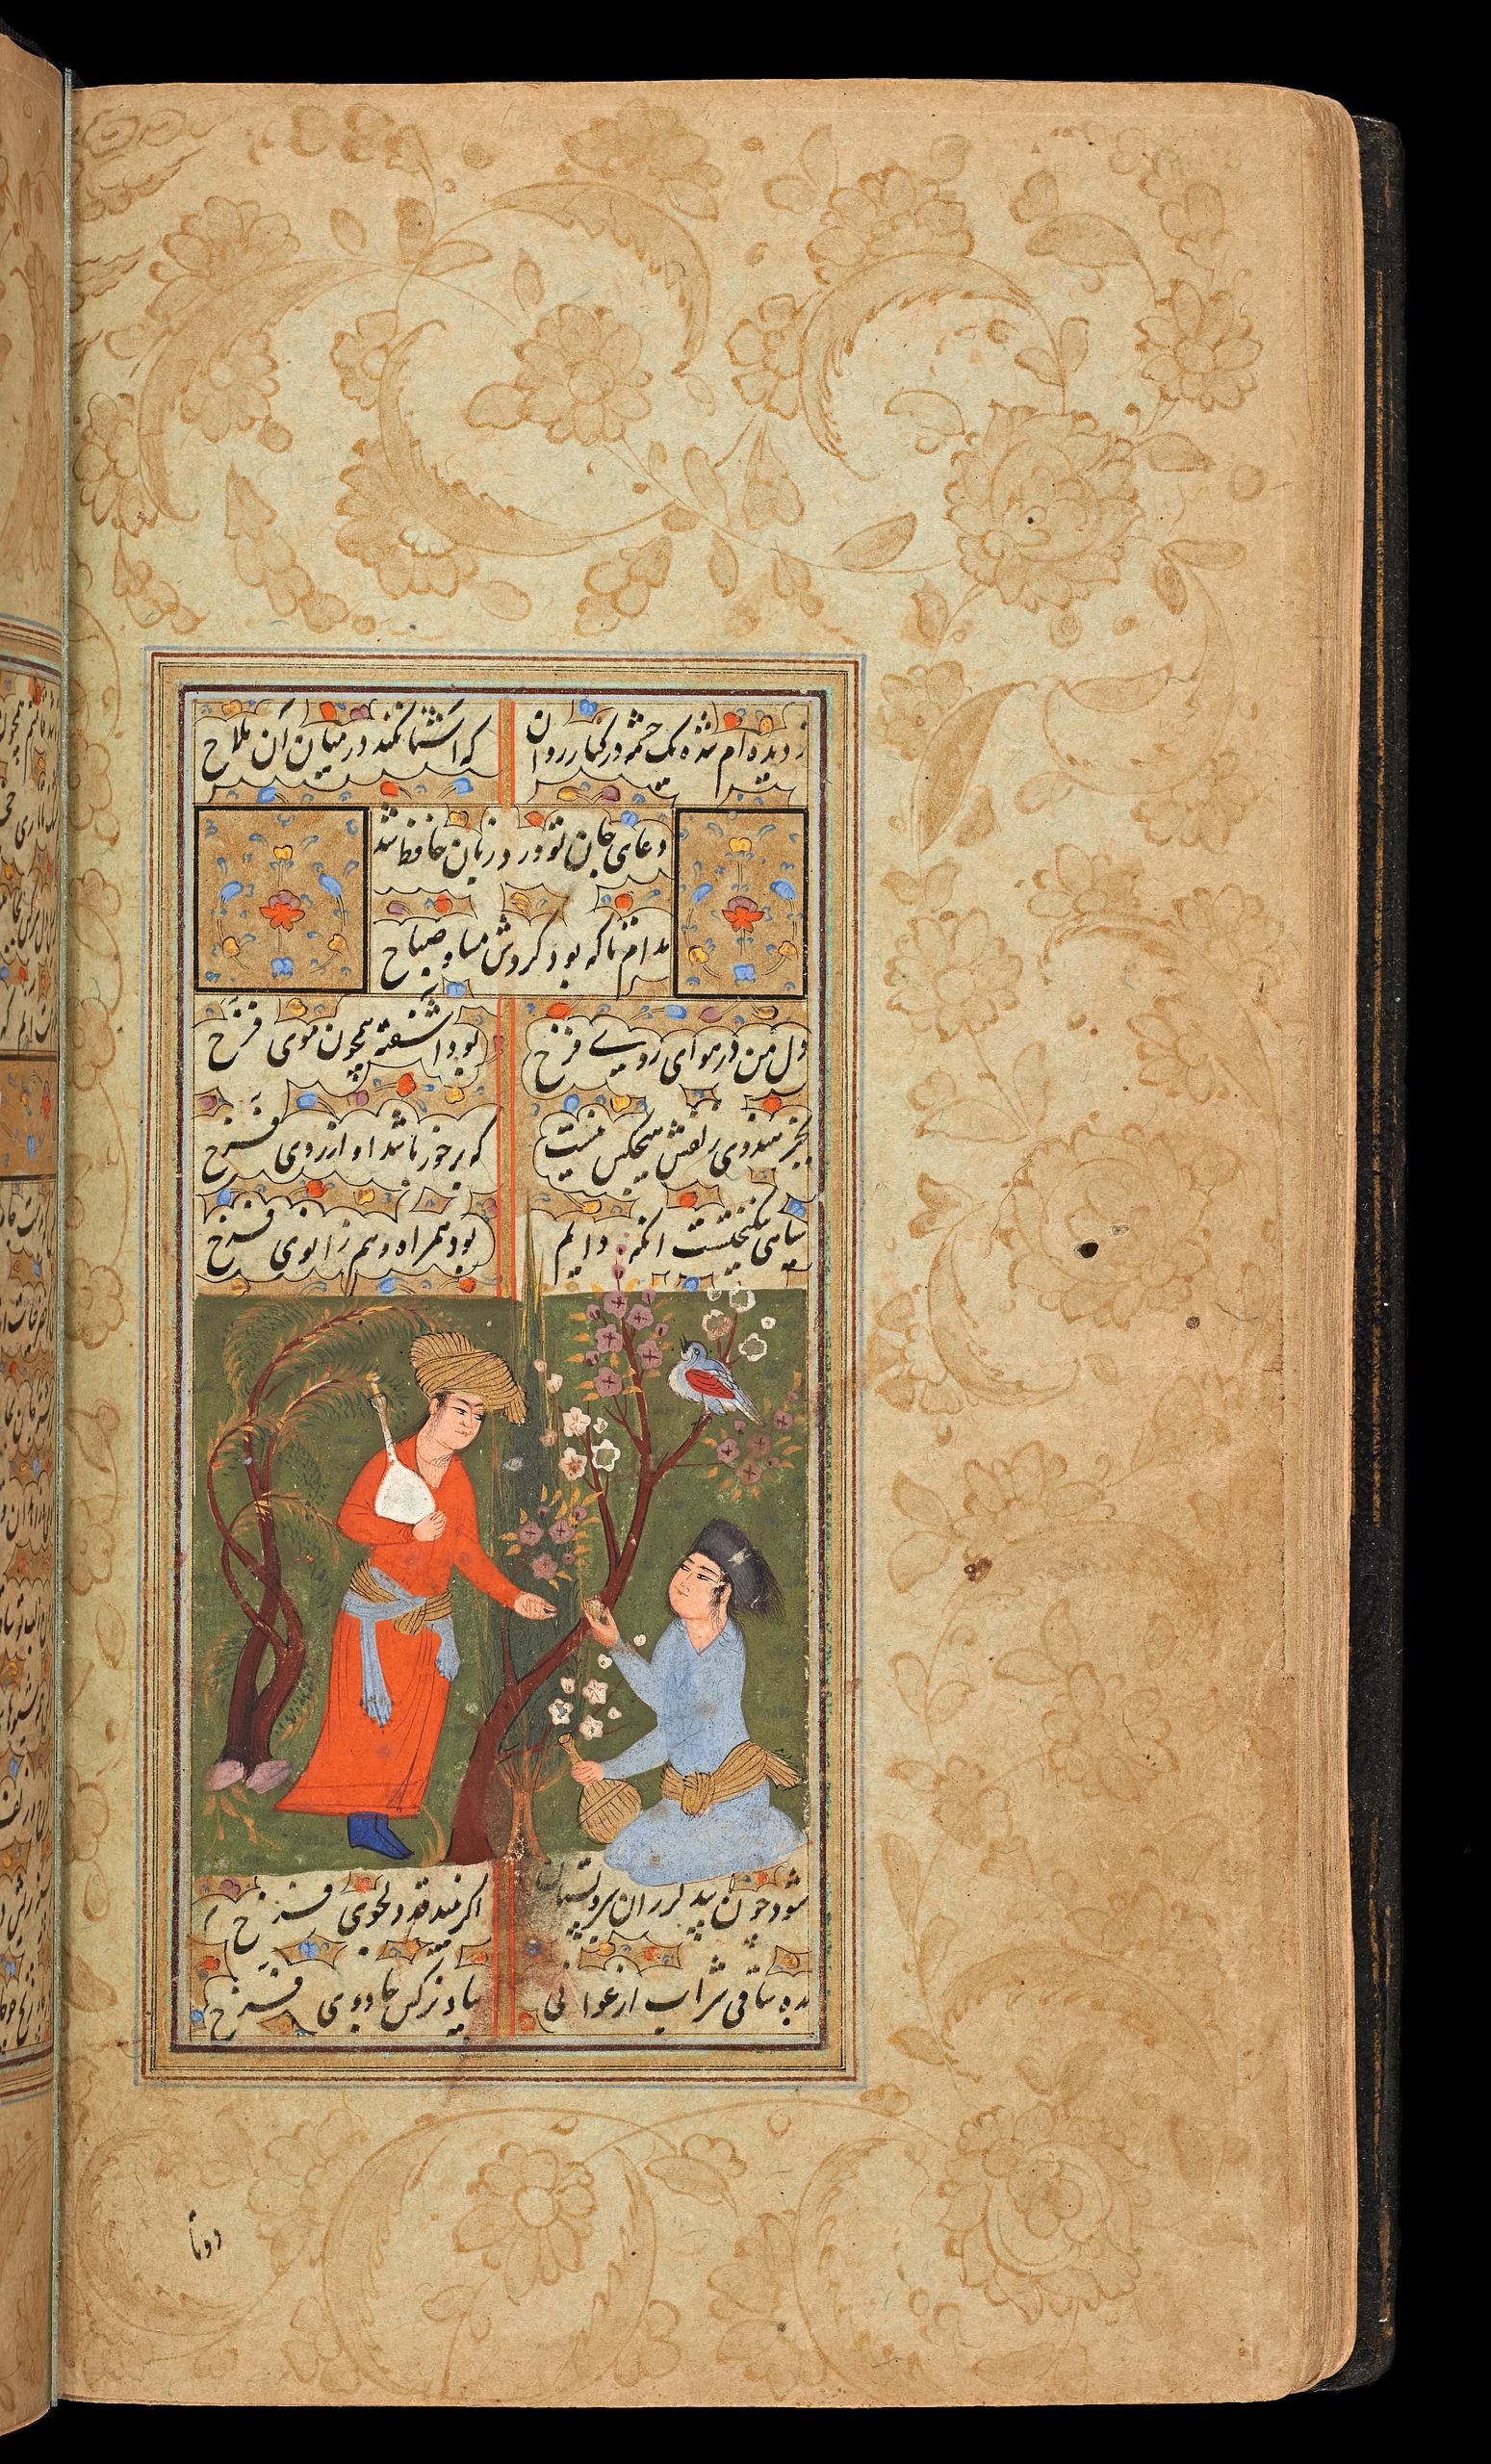 ز دیده‌ام شده یک چشمه در کنار روان
که آشنا نکند در میان آن ملاح
دعای جان تو ورد زبان حافظ شد
مدام تا که بود گردش مسا و صباح
دل من در هوای روی فرخ
بود آشفته همچون موی فرخ
بجز هندوی زلفش هیچکس نیست
که برخوردار شد او از روی فرخ
سیاهی نیکبختست آنکه دایم
بود همراه و هم زانوی فرخ
شود چون بید لرزان سرو بستان
اگر بیند قد دلجوی فرخ
بده ساقی شراب ارغوانی
بیاد نرگس جادوی فرخ
دوتا